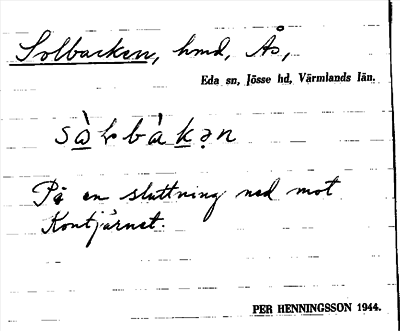 Solbacken, hmd, Ås,
Eda sn, Jösse hd, Värmlands län.
På en sluttning ned mot
Kontjärnet.
PER HENNINGSSON 1944.